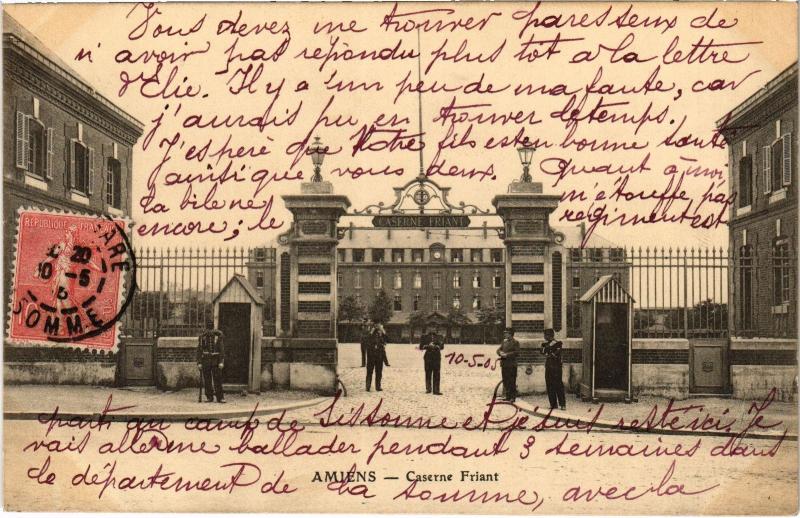 Vous devez me trouver paresseux de
n'avoir pas répondu plus tôt à la lettre
d'Elie. Il y a 'un peu de ma faute, car
j'aurais pu en trouver de temps.
J'espère que Votre fils est en bonne santé
ainsi que vous deux. Quant à moi
la bile ne m'étouffe pas
encore; le régiment est
CASERNE FRIANT
RÉPUBLIQUE FRANÇAISE
GARE
20
10-5
SOMME
10-5-05
parti au camp de Sissonne et je suis resté ici. Je
vais aller me ballader pendant 3 semaines dans
le département de la Somme, avec la
AMIENS — Caserne Friant